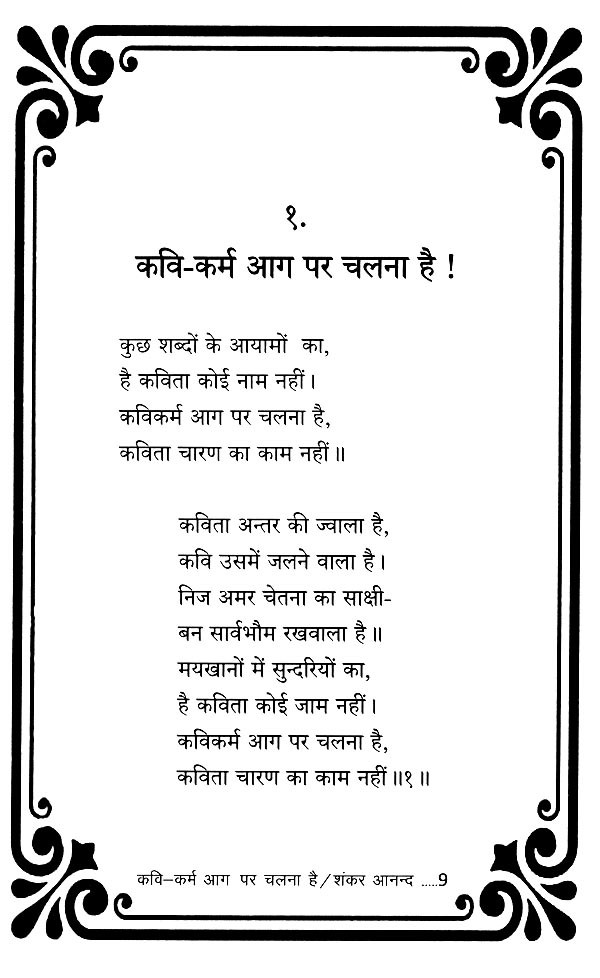 १.
कवि-कर्म आग पर चलना है !
कुछ शब्दों के आयामों का,
है कविता कोई नाम नहीं।
कविकर्म आग पर चलना है,
कविता चारण का काम नहीं॥
कविता अन्तर की ज्वाला है,
कवि उसमें जलने वाला है।
निज अमर चेतना का साक्षी-
बन सार्वभौम रखवाला है॥
मयखानों में सुन्दरियों का,
है कविता कोई जाम नहीं।
कविकर्म आग पर चलना है,
कविता चारण का काम नहीं॥१॥
कवि–कर्म आग पर चलना है/शंकर आनन्द .....9